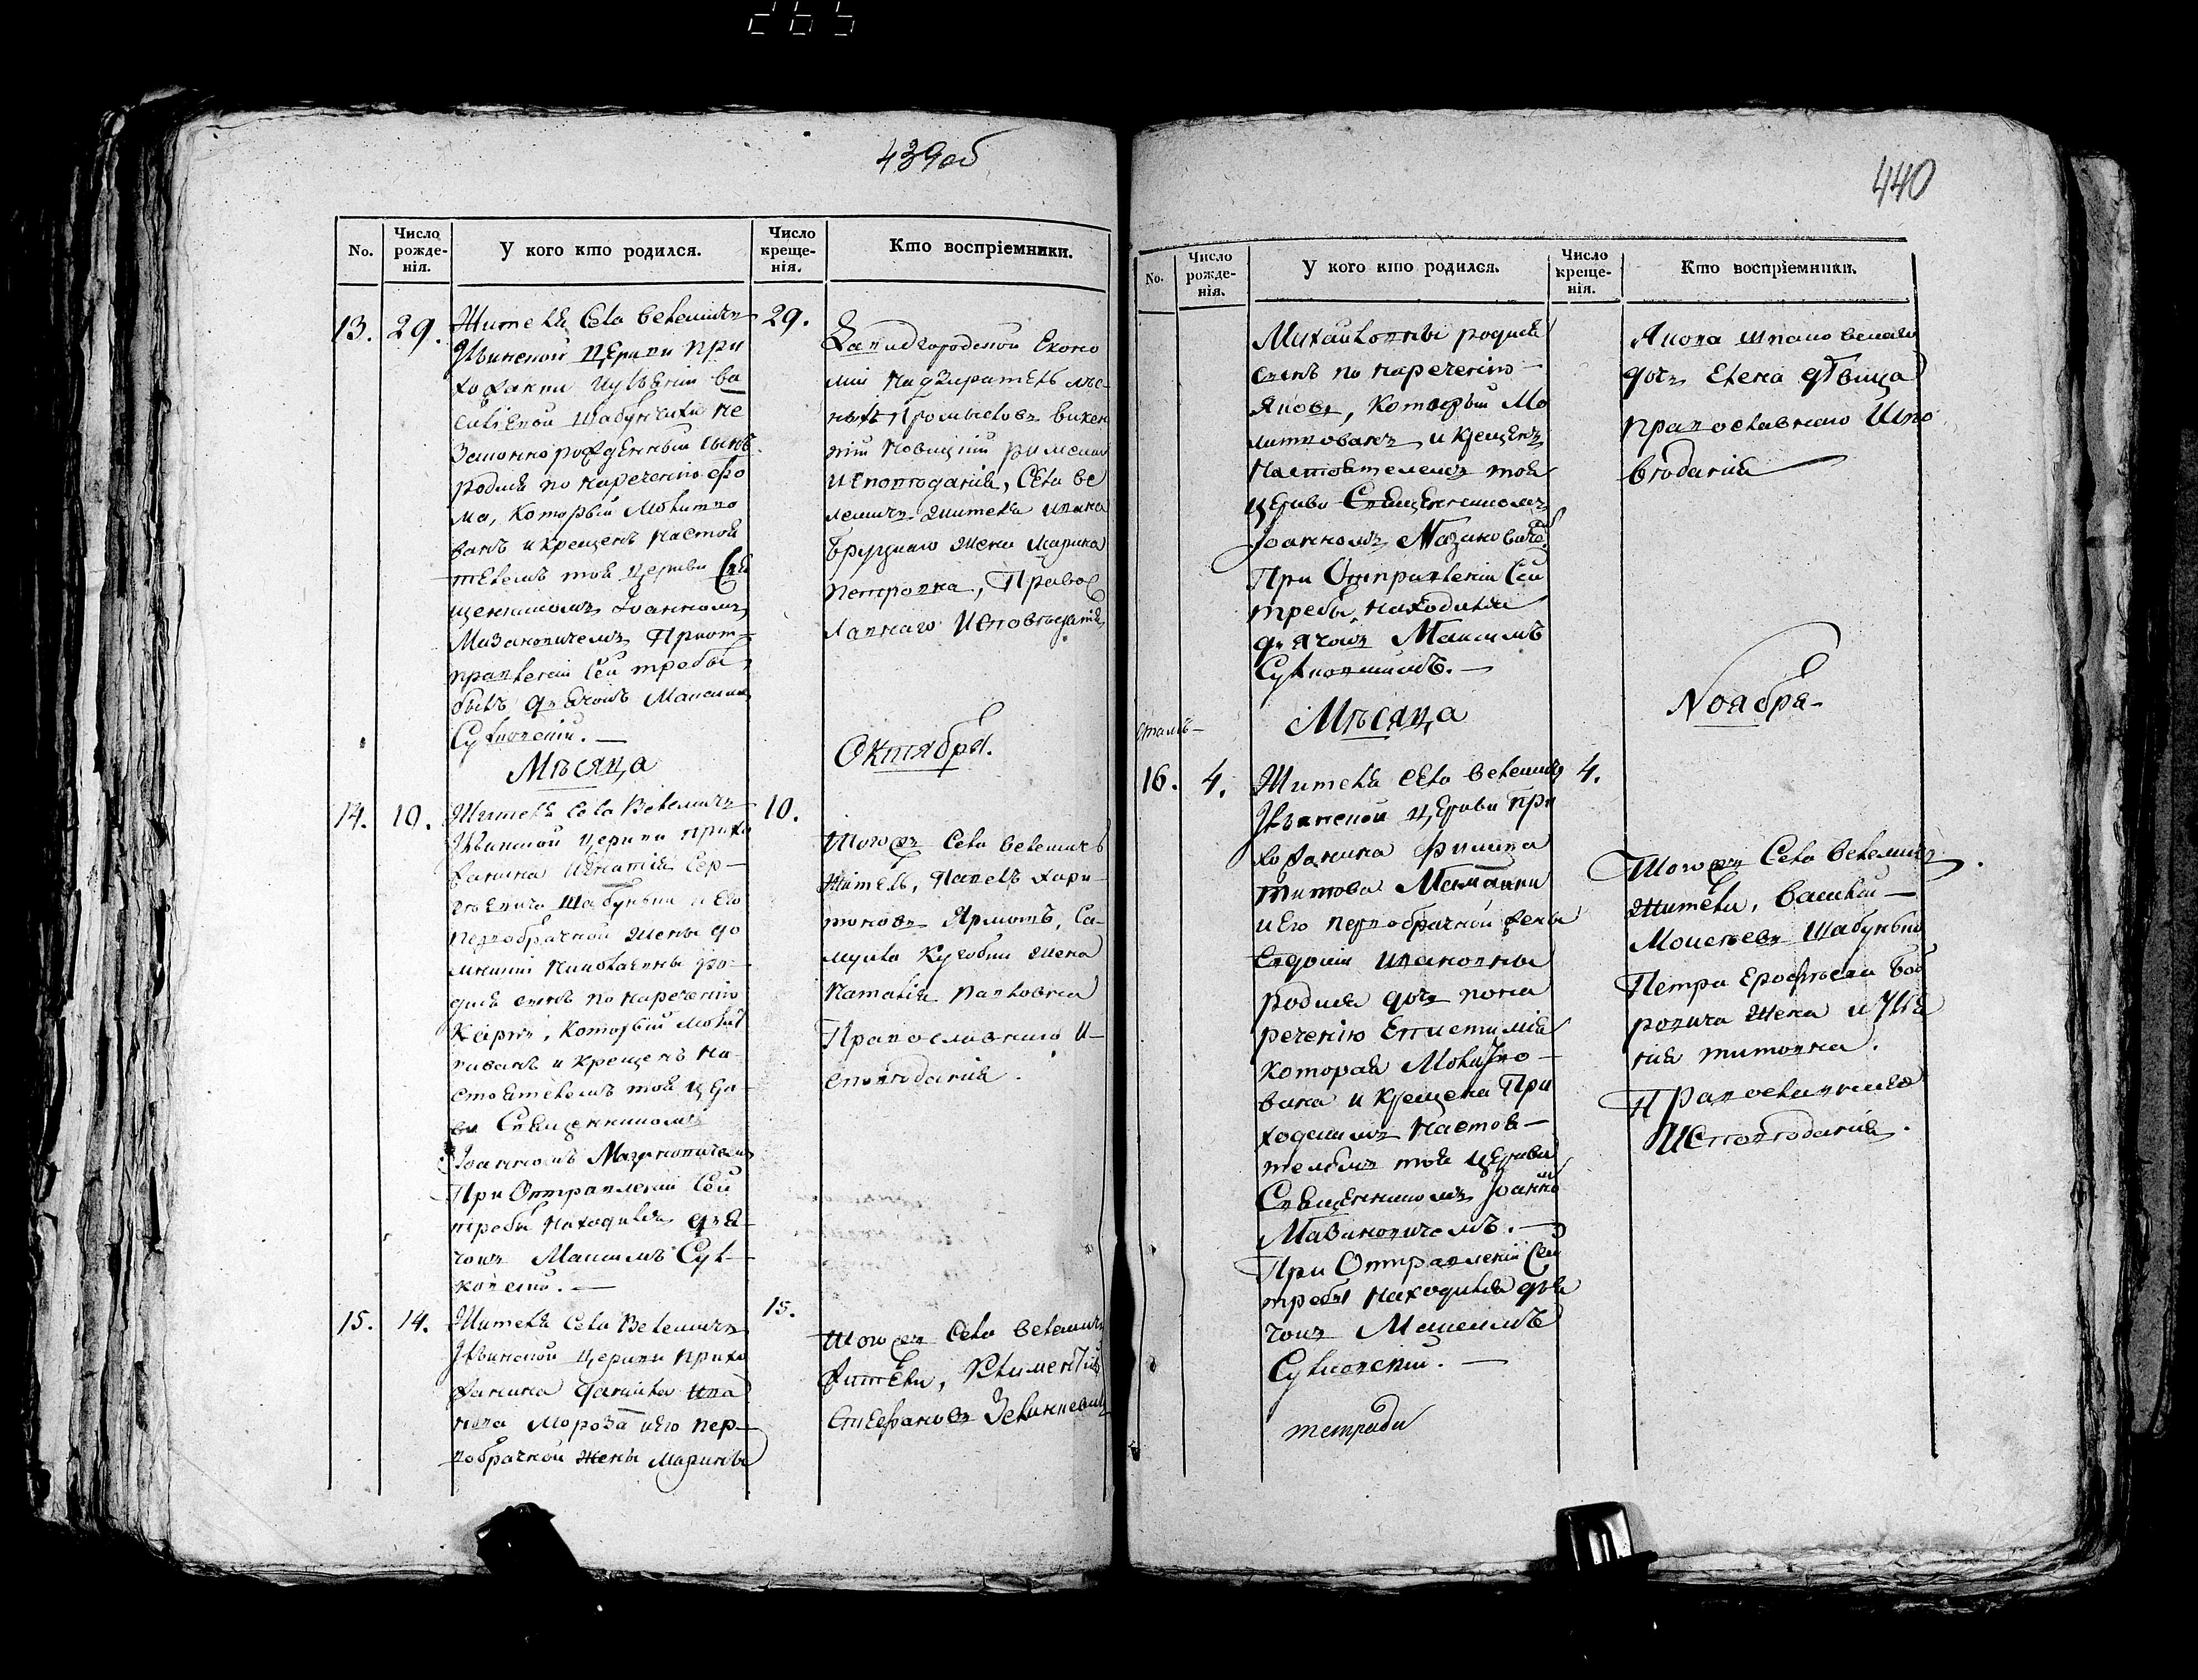 265
439об
No.
Число рожде- нія.
У кого кто родился.
Число креще- нія.
Кто воспріемники.
13. 29.
Жителя Села Велемичъ
Ильинской Церкви при
хожанки
незаконнорожденный сынъ
родился по наречению Фо
ма, который молитво
ванъ и крещенъ настоя
телемъ той церкви Свя
щенникомъ Іоанномъ
Мазановичемъ При от=
правленіи сей требы
былъ дьячокъ Максимъ
Сулковскій. —
29.
городской Эконо
міи надзиратель лѣс
ныхъ промысловъ Викен
тій Новицкій римскаго
исповѣданія, Села Ве
лемичъ жителя Ивана
жена Марина
Петровна, Правос
лавнаго Исповѣданія
Мѣсяца
Октября.
14. 10.
Жителя Села Велемичъ
Ильинской Церкви прихо
жанина Игнатія Сер—
гѣевича Шабуньки и его
первобрачной жены До
мникіи Николаевны ро—
дился сынъ по наречению
Карпъ, который молит
вованъ и крещенъ на—
стоятелемъ той церк—
ви Священникомъ
Іоанномъ Мазановичемъ
При Отправленіи Сей
требы находился дьяч—
чокъ Максимъ Сул—
ковскій. —
10.
Тогожъ Села Велемичъ
Житель, Павелъ Хари—
тоновъ Ярмошъ, Са—
муила жена
Наталія Павловна
Православнаго И—
сповѣданія.
15. 14.
Жителя Села Велемичъ
Ильинской Церкви прихо
жанина Данила Ива
нова Мороза и его пер—
вобрачной жены Марины
15.
Тогожъ Села Велемичъ
жители, Климентій
Стефановъ
440
No.
Число рожде- нія.
У кого кто родился.
Число креще- нія.
Кто воспріемники.
Михайловны родился
сынъ по наречению—
Яковъ, который Мо
литвованъ и крещенъ
настоятелемъ той
церкви Священникомъ
Іоанномъ Мазановичемъ
При Отправленіи Сей
требы находился
дьячокъ Максимъ
Сулковскій. —
Якова
дочь Елена дѣвица
православнаго Испо
вѣданія
Мѣсяца
Ноября—
16. 4.
Жителя Села Велемичъ
Ильинской церкви при
хожанина Филипа
Титова
и его первобрачной жены
Евдокіи Ивановны
родилася дочь пона
речению Епистимія
которая Молитво—
вана и крещена При
ходскимъ Настоя—
телемъ той церкви
Священникомъ Іоанно
Мазановичемъ. —
При Отправленіи Сей
требы находился дья
чокъ Максимъ
Сулковскій. —
4.
Тогожъ Села Велемичъ
Жители, Василій —
Моисеевъ Шабунько
Петра Ерофѣева Боб
ровича жена
Титовна.
Православнаго
Исповѣданія.
тетради